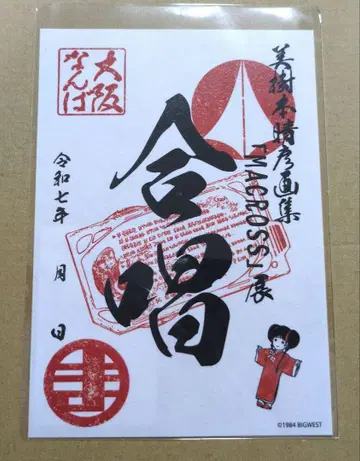 美樹本晴彦画集
「MACROSS」展
合唱
大阪
なんば
令和七年 月 日
©1984 BIGWEST